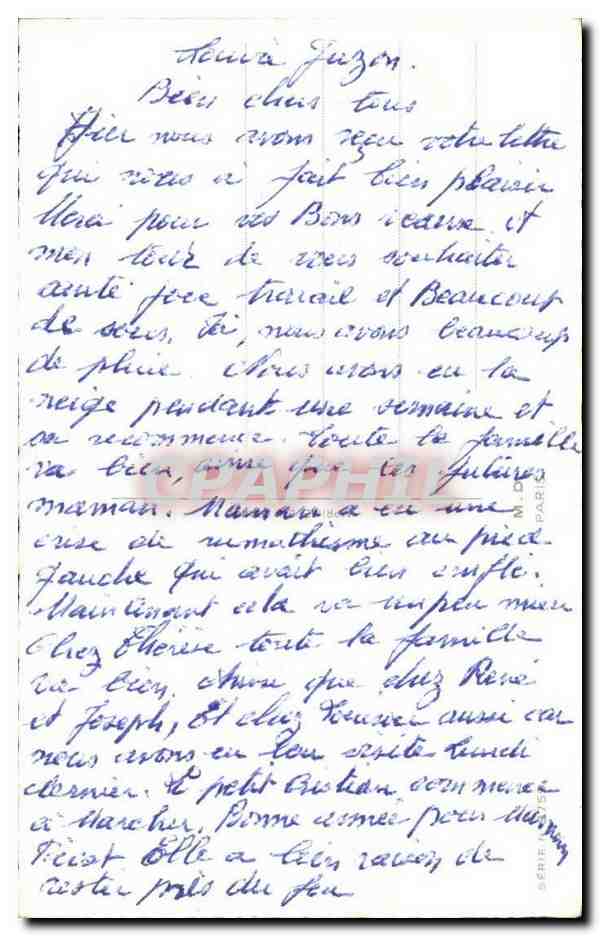 Bien chers tous
Hier nous avons reçu votre lettre
qui nous a fait bien plaisir
Merci pour vos Bons et
mon tour de vous souhaiter
santé joie travail et Beaucoup
de sous. Ici, nous avons beaucoup
de pluie. Nous avons eu la
neige pendant une semaine et
on recommence. Toute la famille
va bien, ainsi que les futures
maman. Maman a eu une
crise de rumathisme au pied
gauche qui avait bien enflé.
Maintenant cela va un peu mieu
Chez Thérèse toute la famille
va bien. Ainsi que chez René
et Joseph, Et chez aussi car
nous avons eu leur visite lundi
dernier. Le petit Cristian commence
à Marcher. Bonne année pour
Elle a bien raison de
rester près du feu
CPARPHIL
M.D.
PARIS
SÉRIE